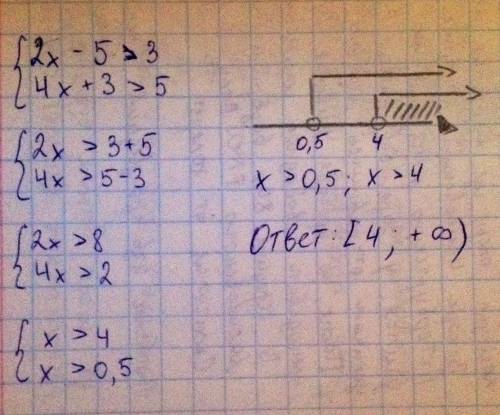 2x - 5 > 3
4x + 3 > 5
2x > 3+5
4x > 5-3
2x > 8
4x > 2
x > 4
x > 0,5
0,5 4
x > 0,5; x > 4
Ответ: [4; + ∞)